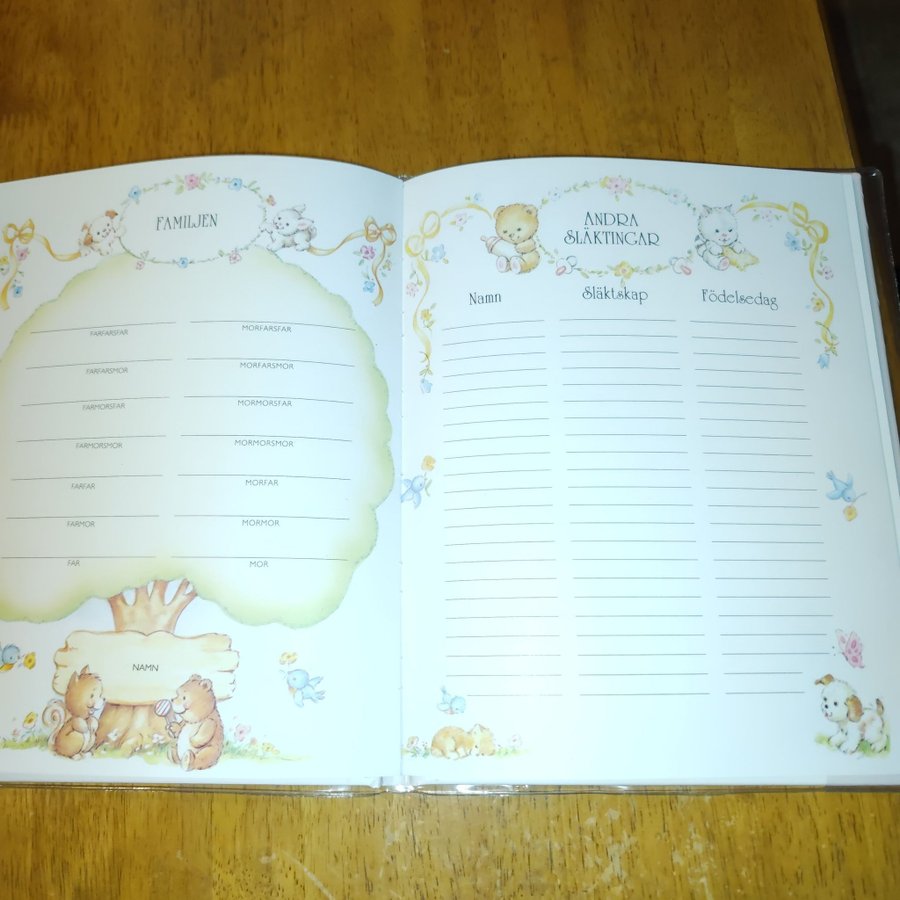 FAMILJEN
FARFARSFAR MORFARSFAR
FARFARSMOR MORFARSMOR
FARMORSFAR MORMORSFAR
FARMORSMOR MORMORSMOR
FARFAR MORFAR
FARMOR MORMOR
FAR MOR
NAMN
ANDRA
SLÄKTINGAR
Namn Släktskap Födelsedag